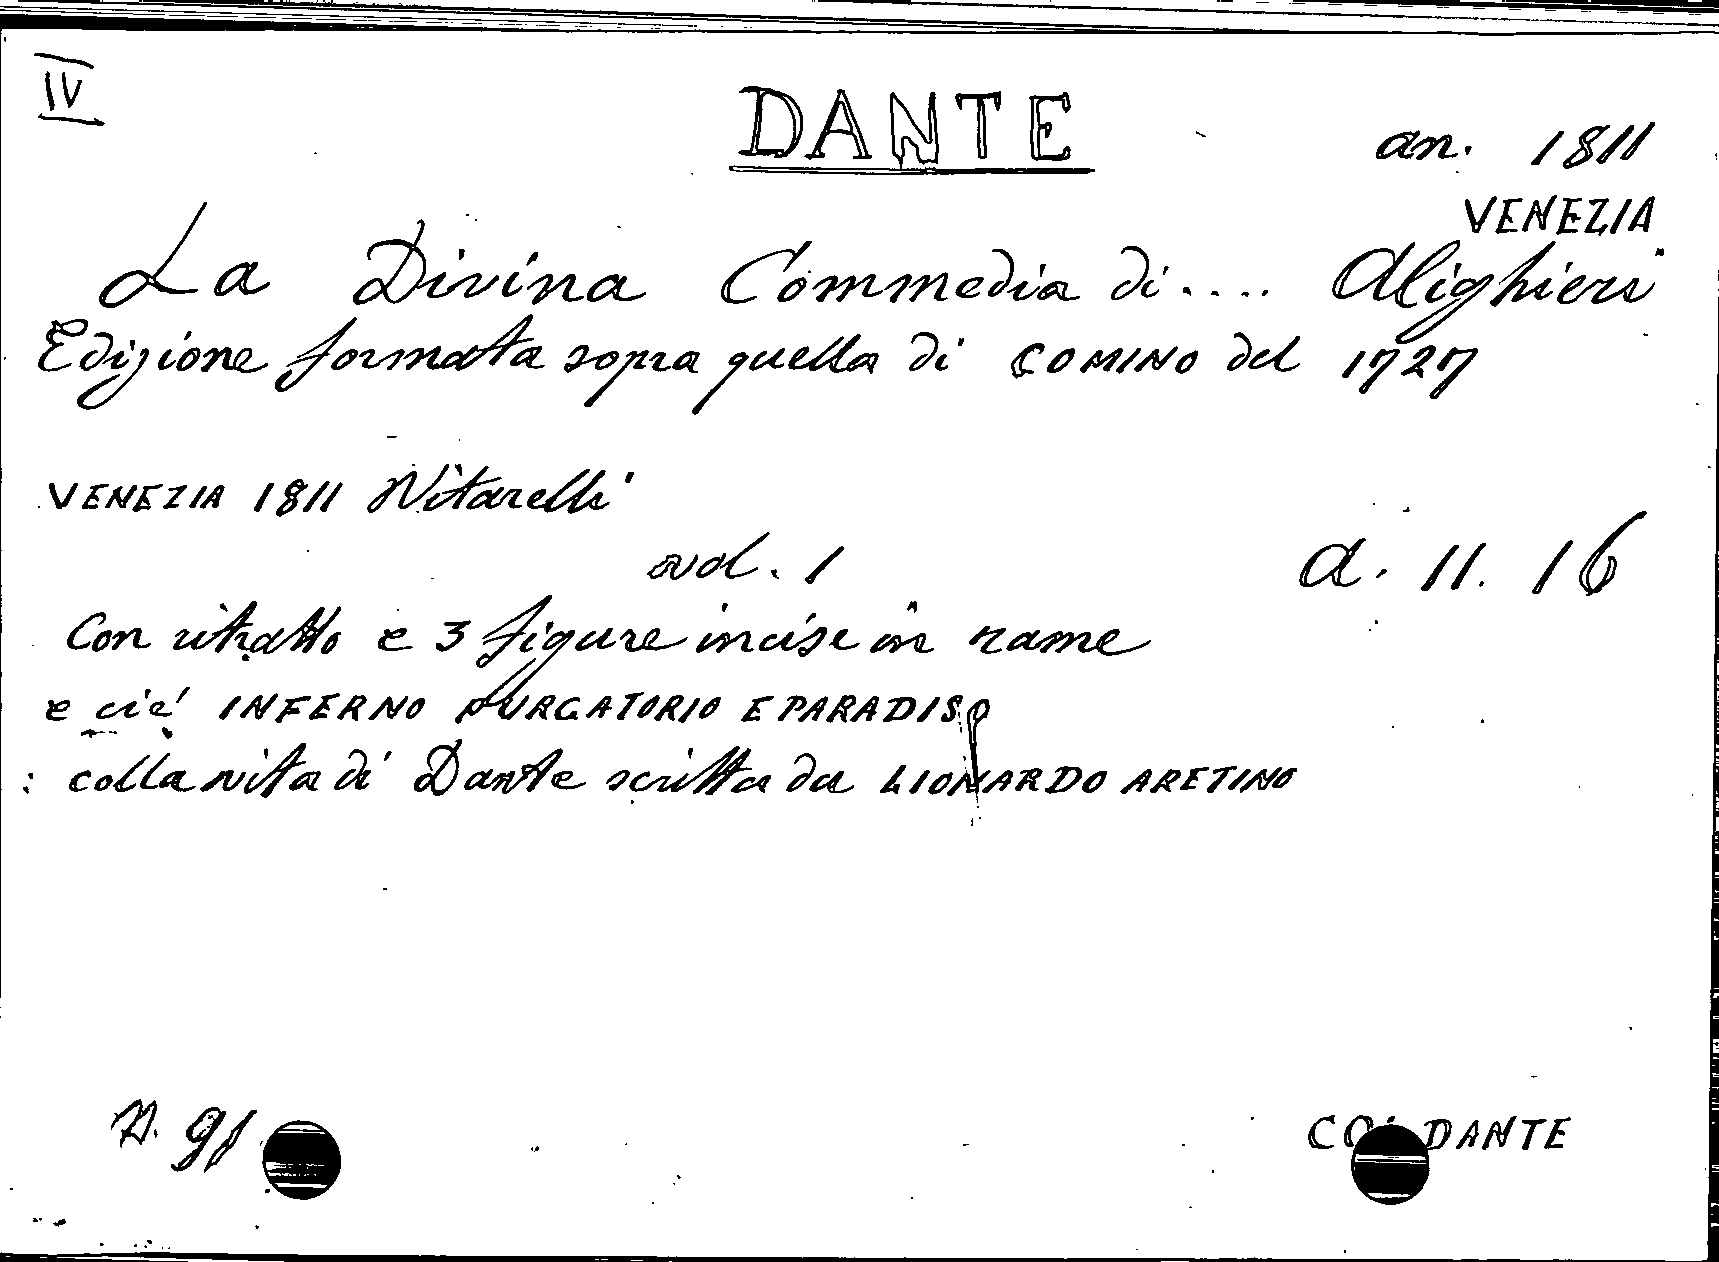 IV
DANTE
an. 1811
VENEZIA
La Divina Commedia di .... Alighieri
Edizione formata sopra quella di COMINO del 1727
VENEZIA 1811 Vitarelli
vol. 1
a. 11. 16
Con ritratto e 3 figure incise in rame
e ciè INFERNO PURGATORIO E PARADISO
: colla vita di Dante scritta da LIONARDO ARETINO
N. 91
DANTE